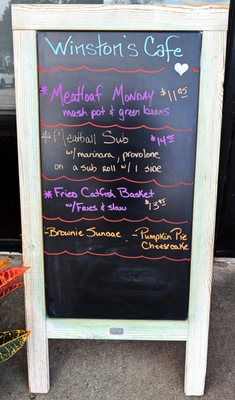 Winston's Cafe
* Meatloaf Monday $11.95
mash pot & green beans
* Meatball Sub $14.95
w/marinara, provolone
on a sub roll w/ 1 side
* Fried Catfish Basket
w/Fries & slaw $13.95
- Brownie Sundae - Pumpkin Pie
Cheesecake